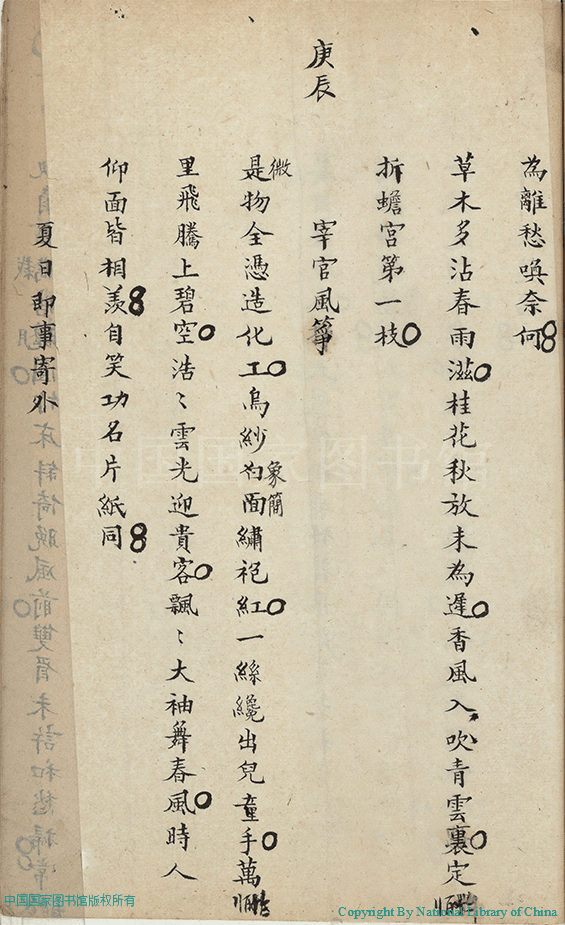 為離愁喚奈何
草木多沾春雨滋桂花秋放未為遲香風入吹青雲裏定
折蟾宮第一枝
庚辰
宰官風箏
是物全憑造化工烏紗白面繡袍紅一絲纔出兒童手萬
微
象簡
里飛騰上碧空浩〻雲光迎貴客飄〻大袖舞春風時人
仰面皆相羨自笑功名片紙同
夏日即事寄外
中国国家图书馆
中国国家图书馆版权所有
Copyright By National Library of China